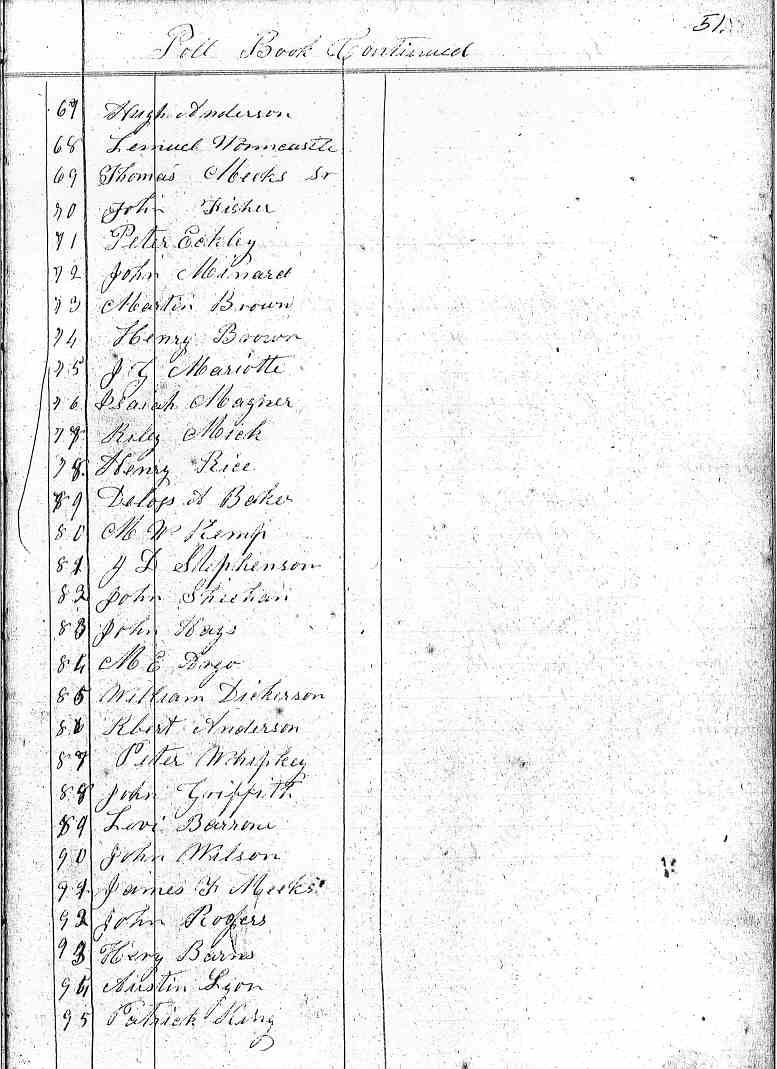 51.
Poll Book Continued
67 Hugh Anderson
68 Lemuel Norncastle
69 Thomas Meeks Sr
70 John Fisher
71 Peter Eckley
72 John Minard
73 Martin Brown
74 Henry Brown
75 J Y Mariotte
76 Isaiah Magner
77 Riley Mick
78 Henry Rice
79 Delos A Baker
80 M W Kemp
81 J D Stephenson
82 John Sheehan
83 John Hags
84 M E
85 William Dickerson
86 Rbert Anderson
87 Peter Whipkey
88 John Griffith
89 Levi Barrone
90 John Wilson
91 James F Meeks
92 John Rogers
93 Hery Barns
94 Austin Lyon
95 Patrick King